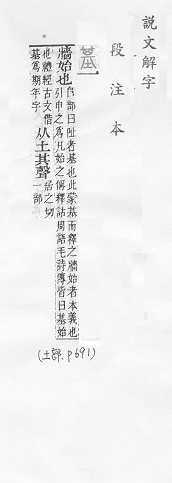 說文解字
段注本
基
牆始也𨸏部曰阯者基也此蒙基而釋之牆始者本義也
引申之爲凡始之偁釋詁周語毛詩傳皆曰基始
也禮經古文借
基爲期年字从土其聲居之切
一部
(土部. p691)